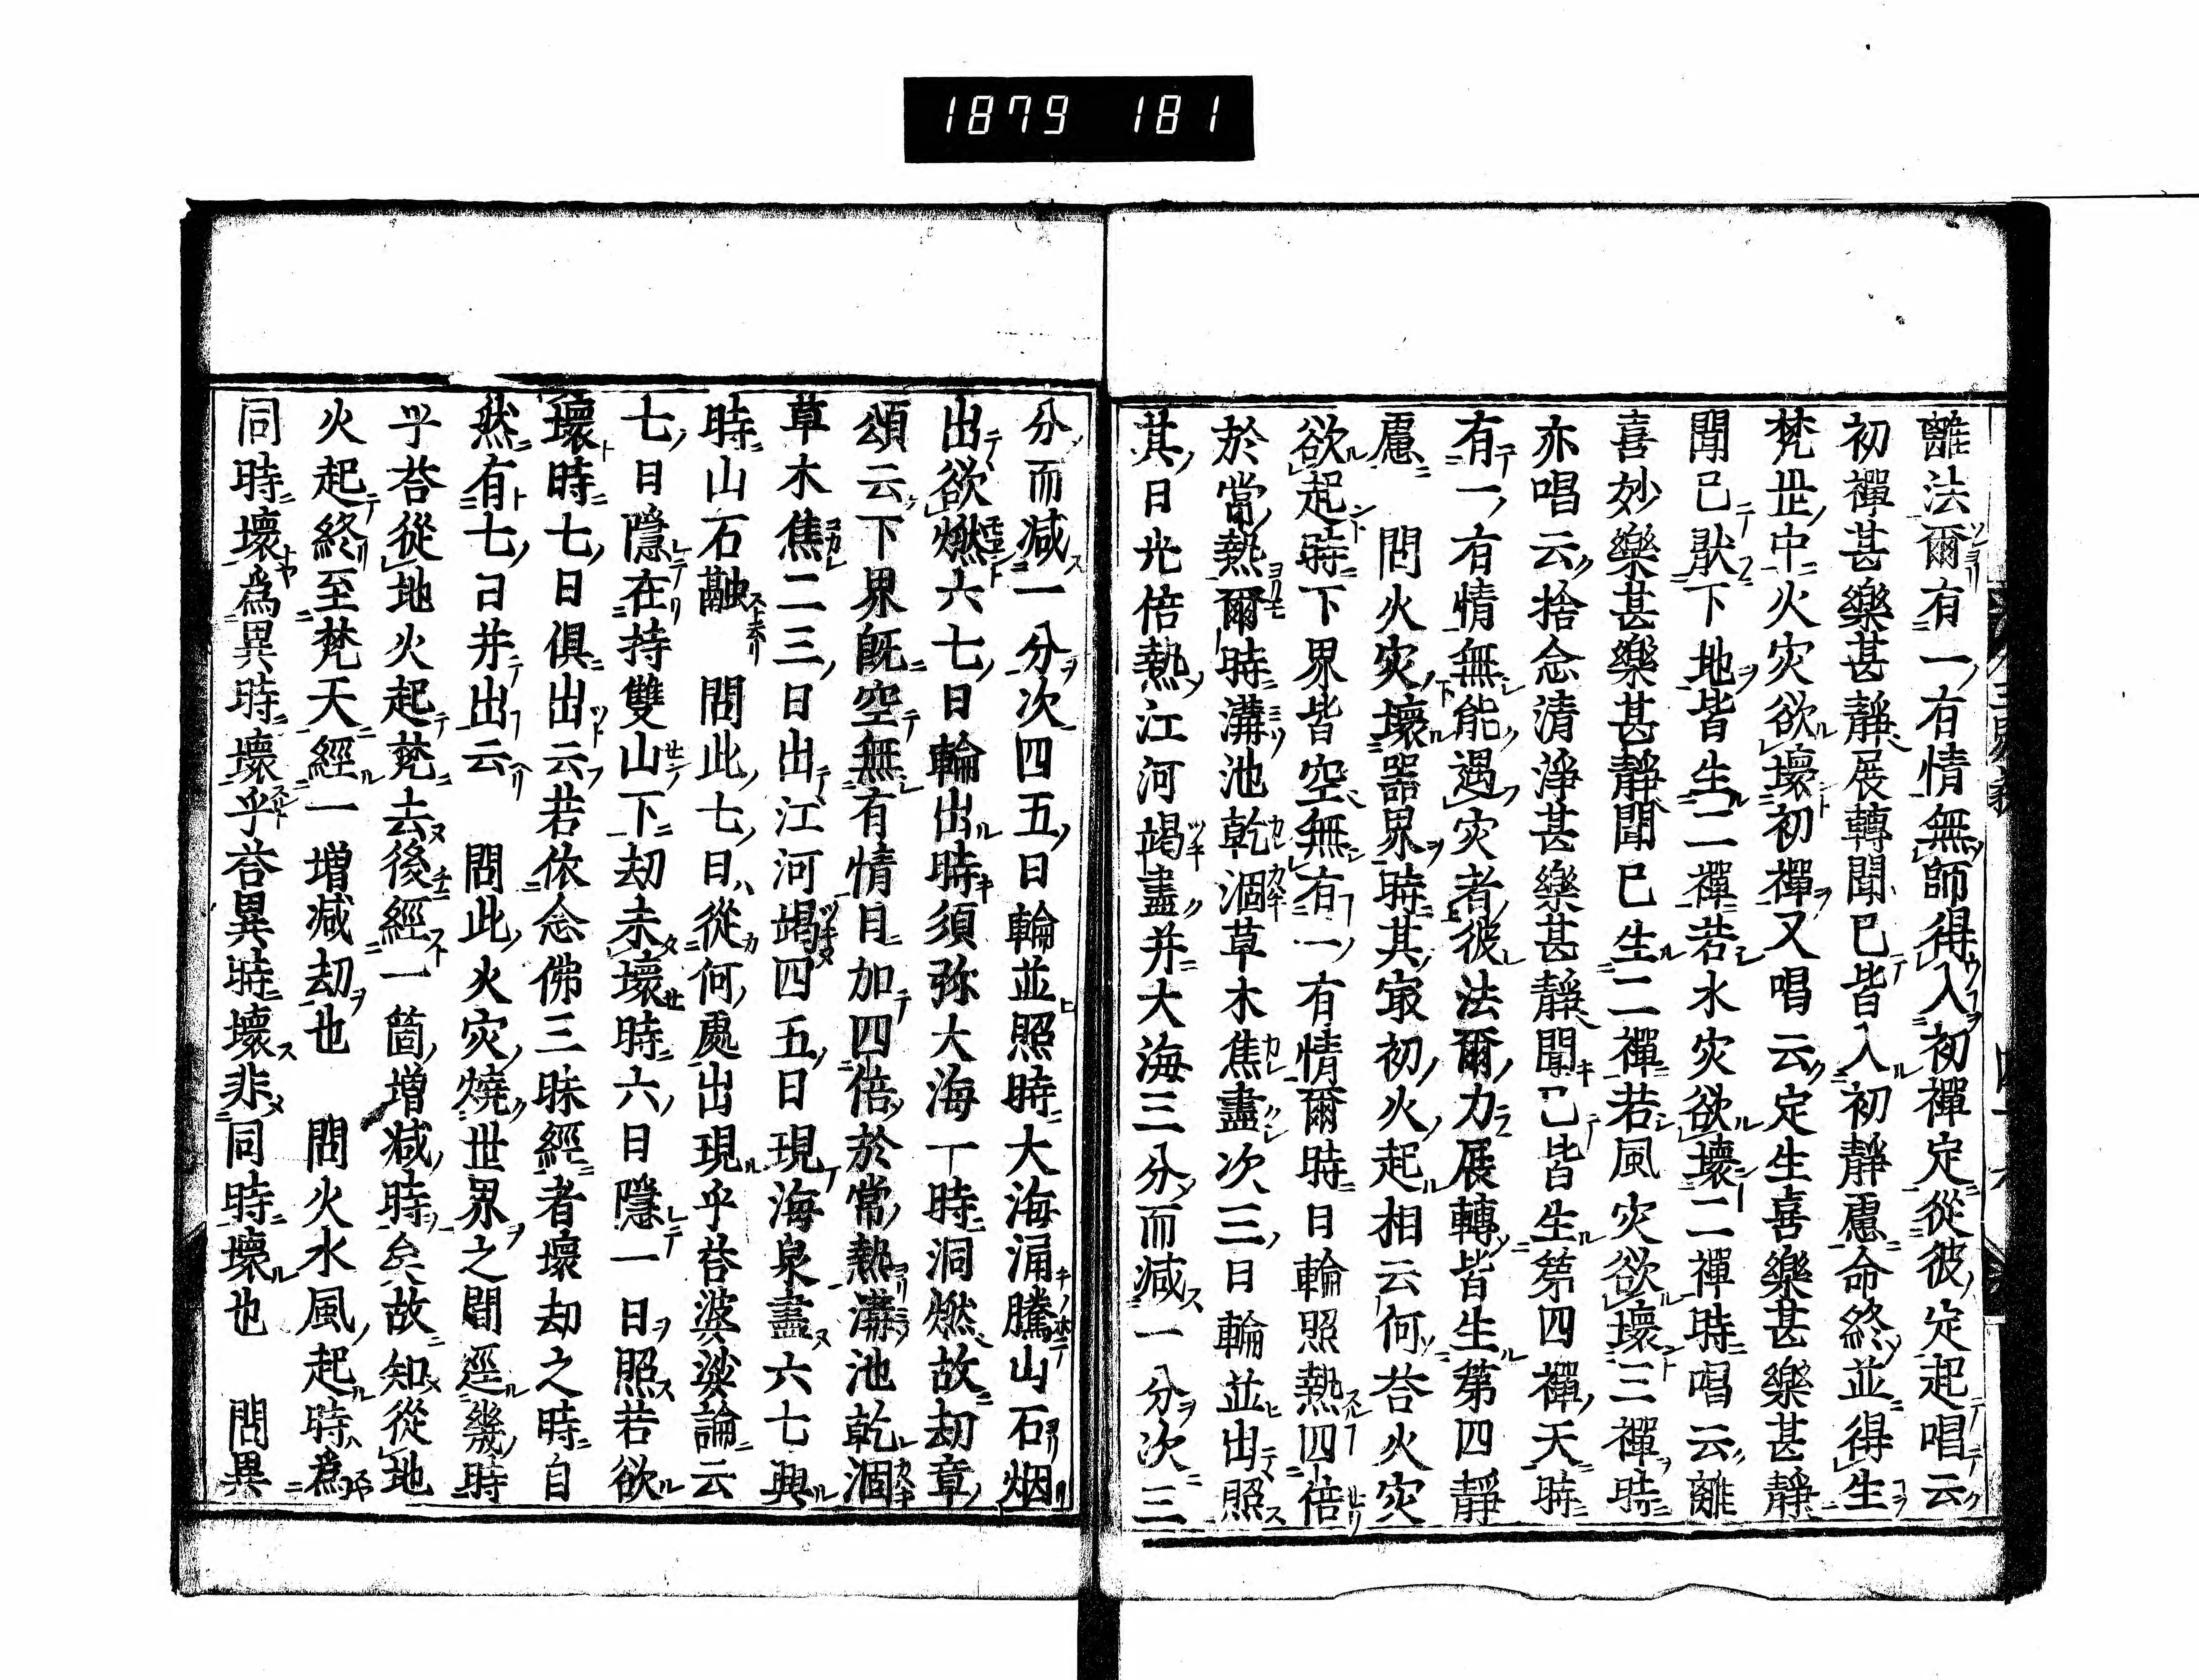 1879 181
離法爾有一有情無師得入初禪定從彼定起唱云
初禪甚樂甚靜展轉聞已皆入初靜慮命終並得生
梵世中火灾欲壞初禪又唱云定生喜樂甚樂甚靜
聞已猒下地皆生二禪若水灾欲壞二禪時唱云離
喜妙樂甚樂甚靜聞已生二禪若風灾欲壞三禪時
亦唱云捨念清淨甚樂甚靜聞已皆生第四禪天時
有一有情無能遇灾者彼法爾力展轉皆生第四靜
慮　問火灾壞器界時其㝡初火起相云何荅火灾
欲起時下界皆空無有一有情爾時日輪照熱四倍
於當熱爾時溝池乾涸草木焦盡次三日輪並出照
其日光倍熱江河竭盡并大海三分而減一分次三
分而減一分次四五日輪並照時大海涌騰山石烟
出欲燃六七日輪出時須弥大海一時洞燃故劫章
頌云下界旣空無有情日加四倍於常熱溝池乾涸
草木焦二三日出江河竭四五日現海泉盡六七輿
時山石融　問此七日從何處出現乎荅婆娑論云
七日隱在持雙山下劫未壞時六日隱一日照若欲
壞時七日俱出云若依念佛三昧經者壞劫之時自
然有七日并出云　問此火灾燒世界之間逕幾時
乎荅從地火起梵去後經一箇增減時矣故知從地
火起終至梵天經一增減劫也　問火水風起時爲
同時壞爲異時壞乎荅異時壞非同時壞也　問異